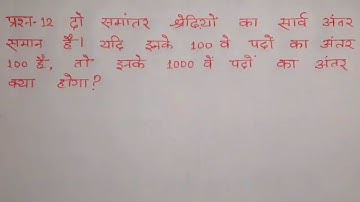 प्रश्न-12 दो समांतर श्रेढ़ियों का सार्व अंतर
समान है। यदि इनके 100 वे पदों का अंतर
100 है, तो इनके 1000 वें पदों का अंतर
क्या होगा?